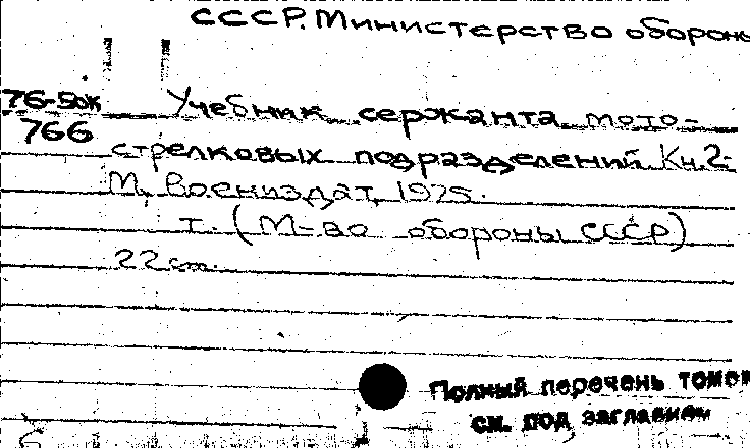 СССР. Министерство оборон
76-50к
766
Учебник сержанта мото-
стрелковых подразделений. Кн. 2-
М., Воениздат, 1975.
т. (М-во обороны СССР)
22 cm.
Полный перечень томов
см. под заглавием